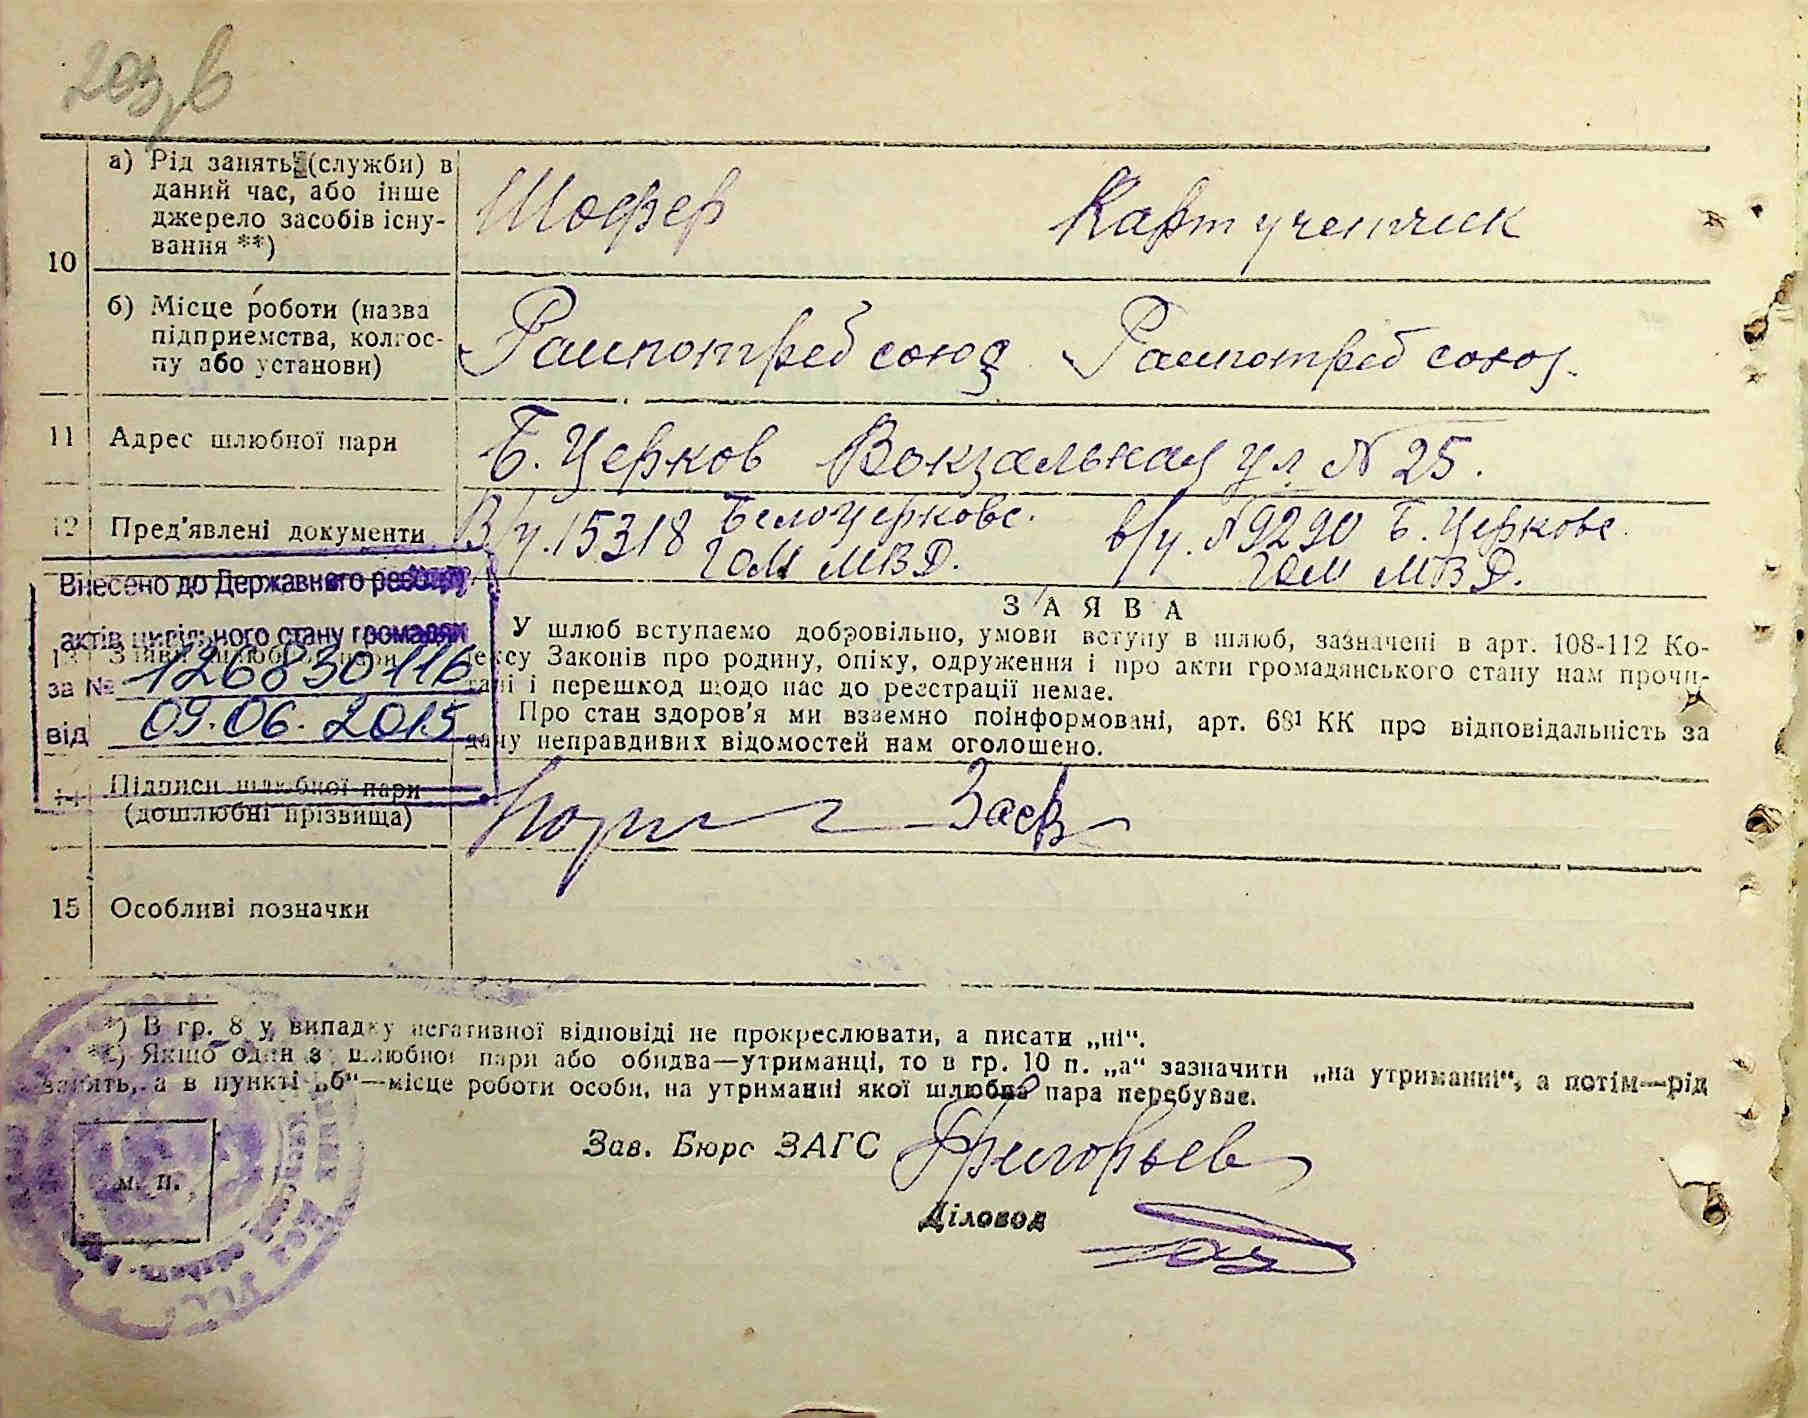 203, в
10
а) Рід занять (служби) в
даний час, або інше
джерело засобів існу-
вання **)
Шофер
Карт ученчик
б) Місце роботи (назва
підприємства, колгос-
пу або установи)
Раипотреб союз
Раипотреб союз.
11 Адрес шлюбної пари
Б. Церков Вокзальная ул № 25.
12 Пред'явлені документи
В/у. 15318 Белоцерковс.
ГОМ МВД.
в/у. №9290 Б. Церковс.
ГОМ МВД.
Внесено до Державного реєстру
актів цивільного стану громадян
за № 126830116
від 09.06.2015
13 Заява шлюбної пари
ЗАЯВА
У шлюб вступаємо добровільно, умови вступу в шлюб, зазначені в арт. 108-112 Ко-
дексу Законів про родину, опіку, одруження і про акти громадянського стану нам прочи-
тані і перешкод щодо нас до реєстрації немає.
Про стан здоров'я ми взаємно поінформовані, арт. 68¹ КК про відповідальність за
дачу неправдивих відомостей нам оголошено.
14 Підписи шлюбної пари
(дошлюбні прізвища)
15 Особливі позначки
*) В гр. 8 у випадку негативної відповіді не прокреслювати, а писати „ні“.
**) Якщо один з шлюбної пари або обидва—утриманці, то в гр. 10 п. „а“ зазначити „на утриманні“, а потім—рід
занять, а в пункті „б“—місце роботи особи, на утриманні якої шлюбна пара перебуває.
Зав. Бюро ЗАГС Григорьев
Діловод
м. п.
УССР